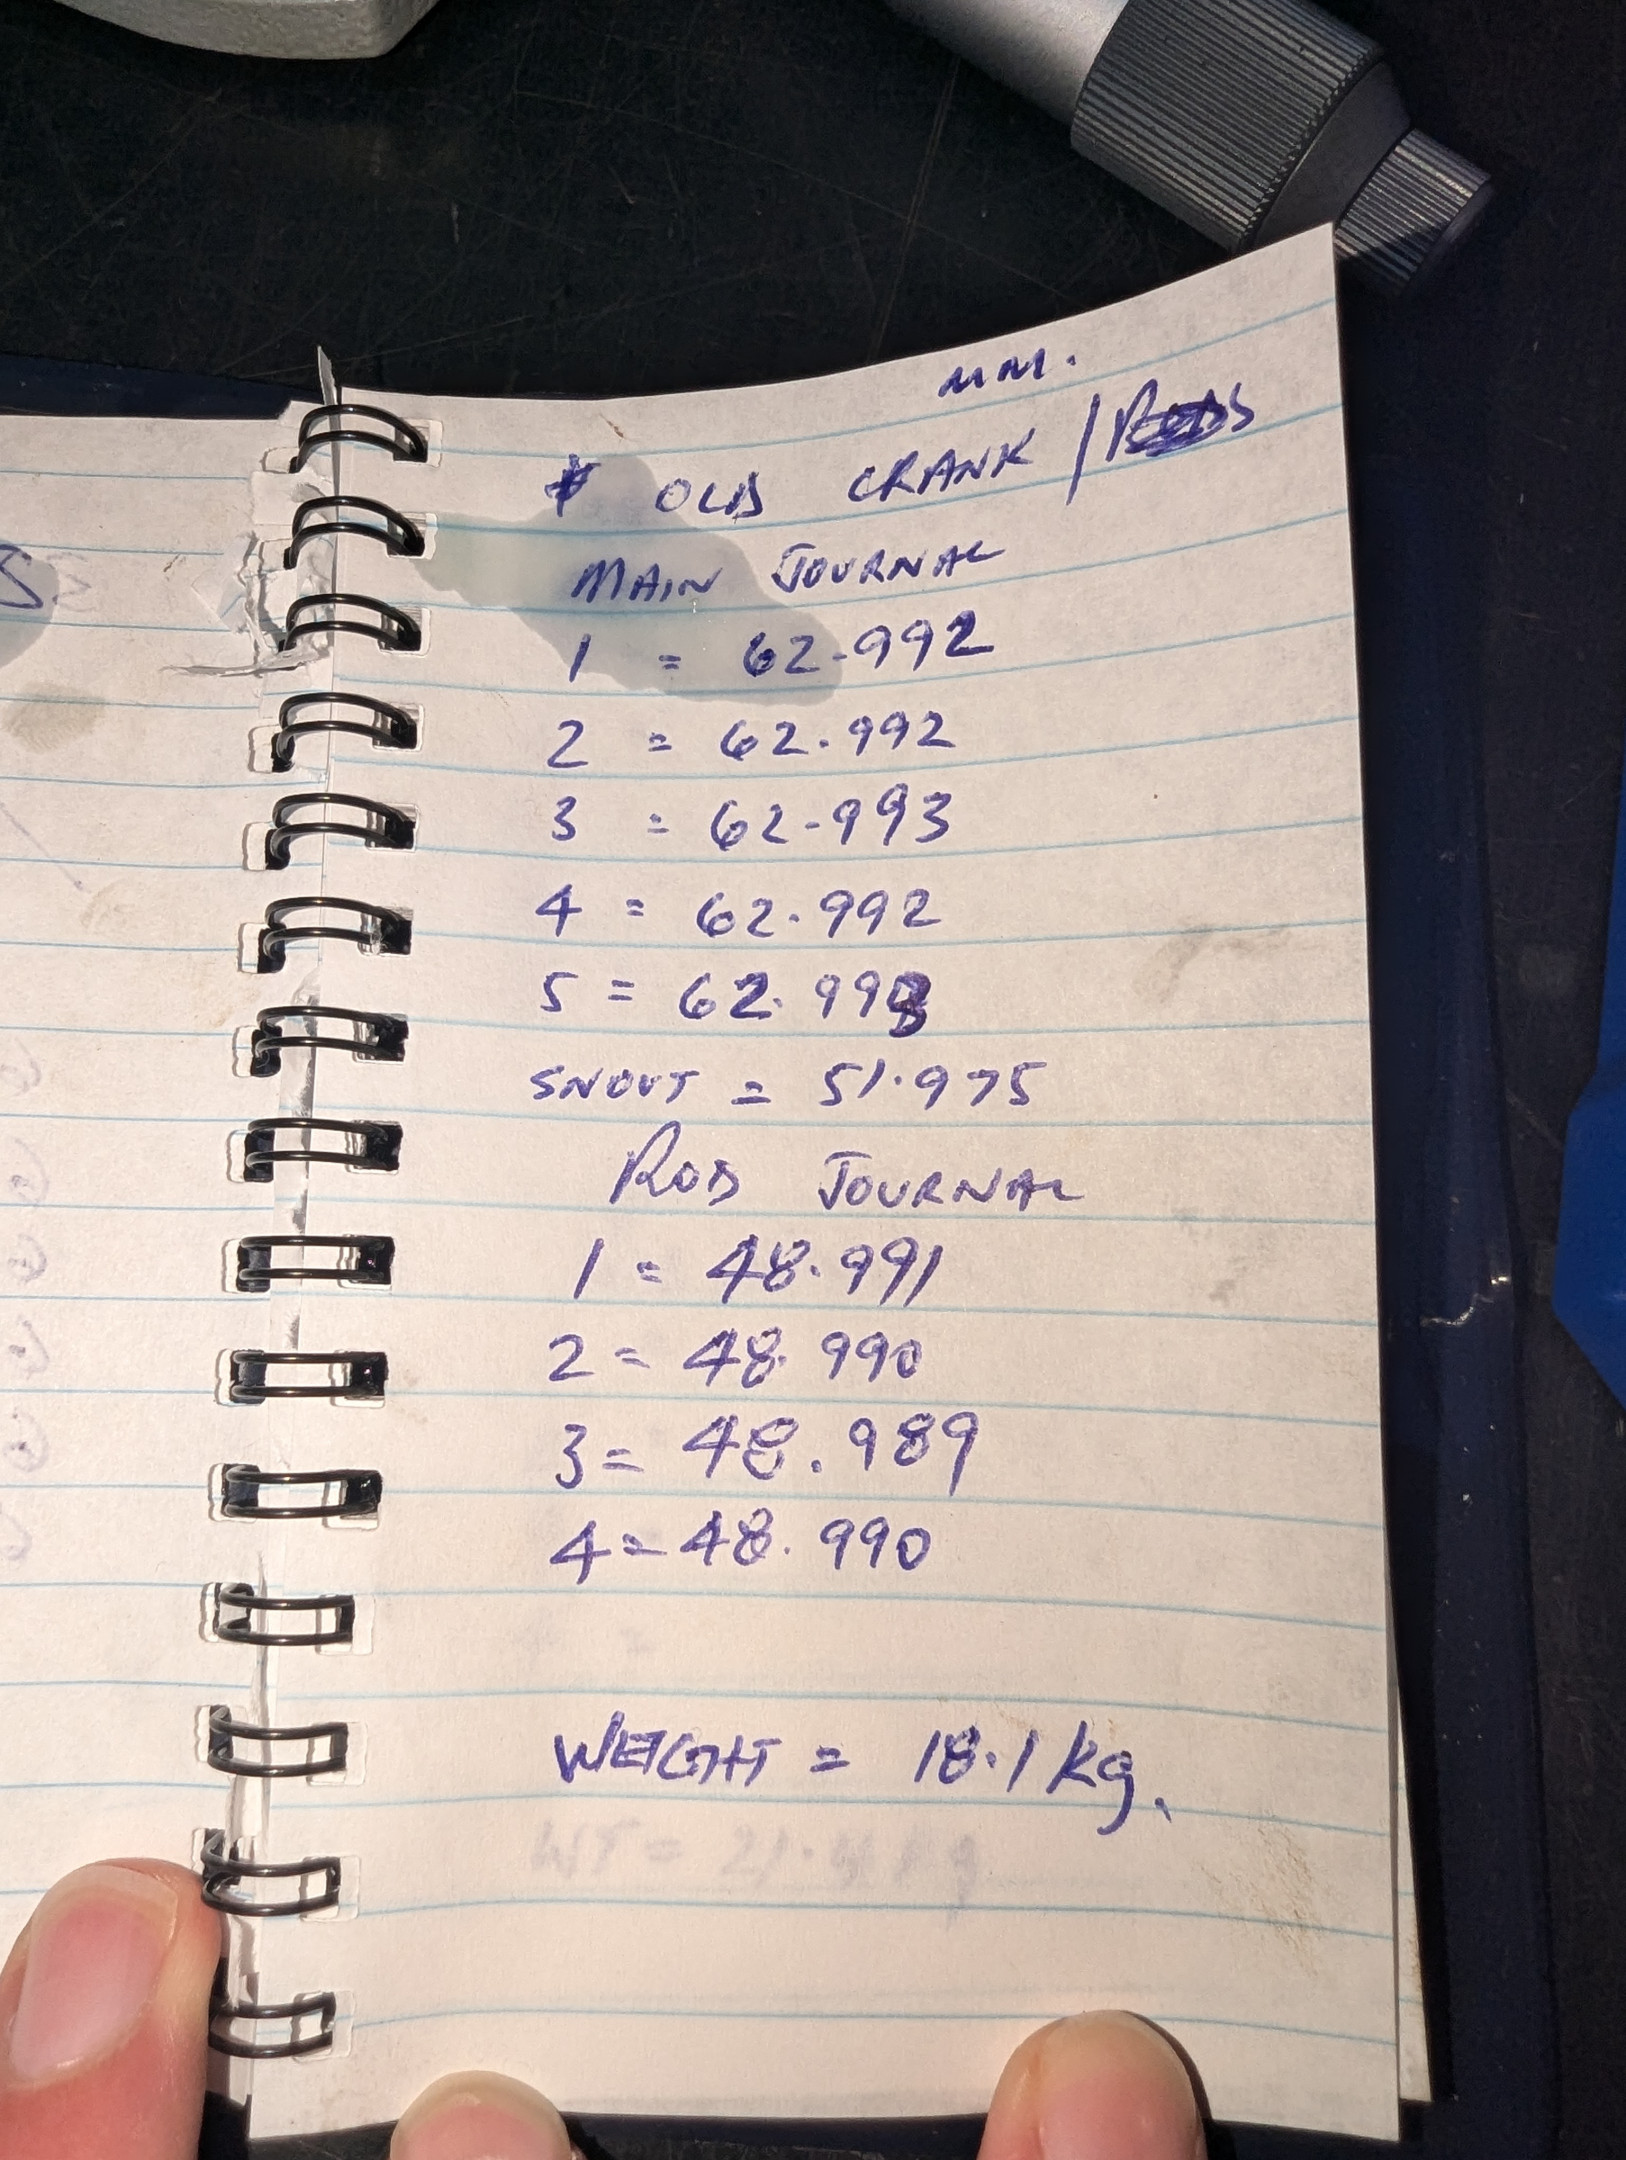 MM.
* OLD CRANK / RODS
MAIN JOURNAL
1 = 62.992
2 = 62.992
3 = 62.993
4 = 62.992
5 = 62.993
SNOUT = 51.975
ROD JOURNAL
1 = 48.991
2 = 48.990
3 = 48.989
4 = 48.990
WEIGHT = 18.1 kg.